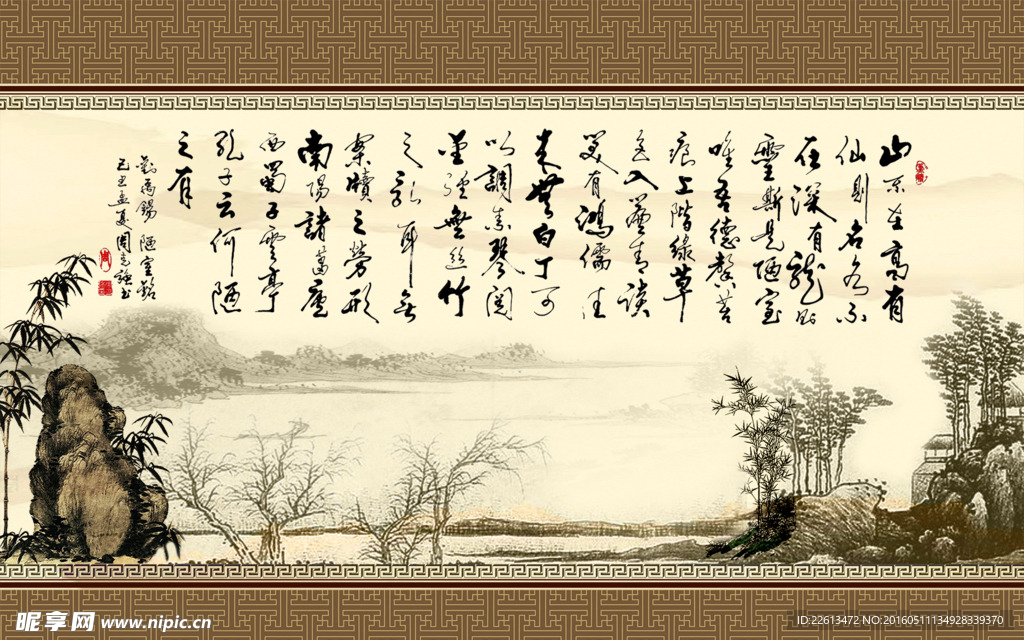 山不在高有
仙則名水不
在深有龍則
靈斯是陋室
唯吾德馨苔
痕上階綠草
色入簾青談
笑有鴻儒往
來無白丁可
以調素琴閱
金經無絲竹
之亂耳無
案牘之勞形
南陽諸葛廬
西蜀子雲亭
孔子云何陋
之有
劉禹錫 陋室銘
己丑孟夏周
昵享网 www.nipic.cn
ID:22613472 NO:20160511134928339370